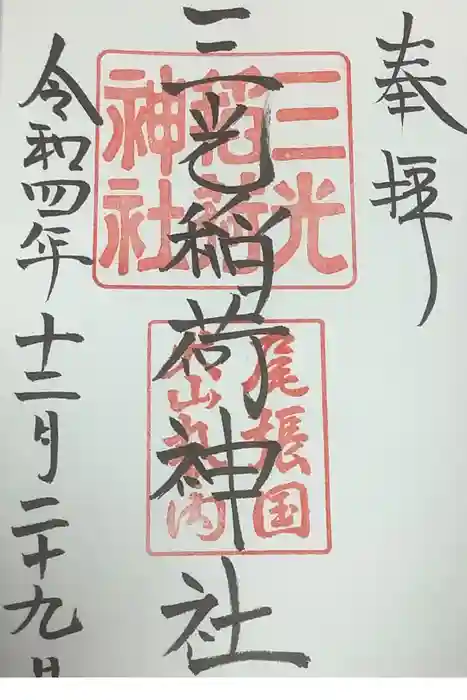 奉拝
三光稲荷神社
三光
稲荷
神社
尾張国
犬山内
令和四年十二月二十九日